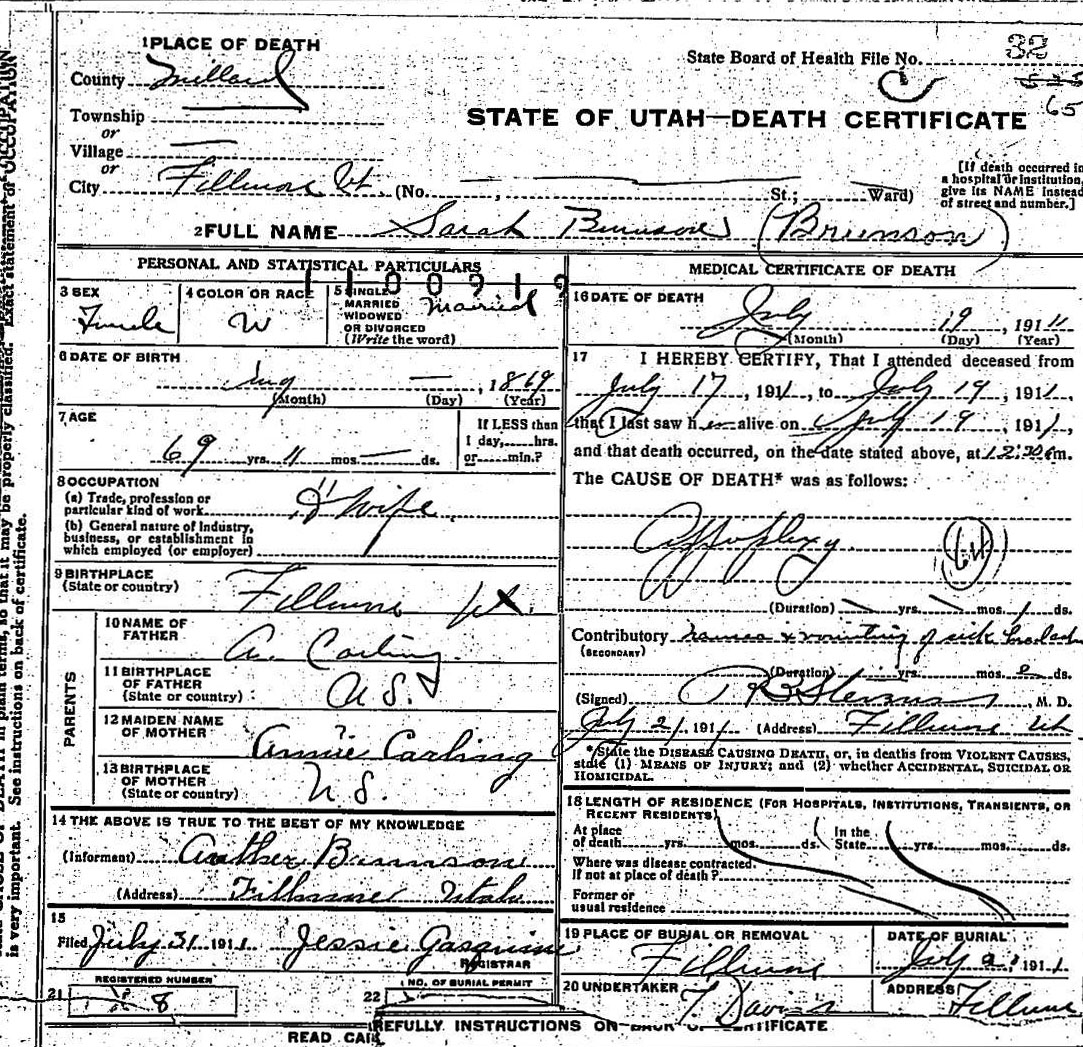 1 PLACE OF DEATH
County Millard
Township
or
Village
or
City Fillmore Ut. (No. St.; Ward)
State Board of Health File No. 32
65
STATE OF UTAH—DEATH CERTIFICATE
[If death occurred in
a hospital or institution,
give its NAME instead
of street and number.]
2 FULL NAME Sarah Brunson (Brunson)
PERSONAL AND STATISTICAL PARTICULARS
1100919
3 SEX
Female
4 COLOR OR RACE
W
5 SINGLE
MARRIED
WIDOWED
OR DIVORCED
(Write the word)
Married
6 DATE OF BIRTH
Aug — , 1869
(Month) (Day) (Year)
7 AGE
69 yrs. 11 mos. — ds.
If LESS than
1 day, hrs.
or min.?
8 OCCUPATION
(a) Trade, profession or
particular kind of work
H wife
(b) General nature of industry,
business, or establishment in
which employed (or employer)
9 BIRTHPLACE
(State or country)
Fillmore Ut.
PARENTS
10 NAME OF
FATHER
A. Carling
11 BIRTHPLACE
OF FATHER
(State or country)
U S.
12 MAIDEN NAME
OF MOTHER
Annie Carling
13 BIRTHPLACE
OF MOTHER
(State or country)
U S.
14 THE ABOVE IS TRUE TO THE BEST OF MY KNOWLEDGE
(Informant) Arther Brunson
(Address) Fillmore Utah
15
Filed July 31 1911 Jessie Gasquine
REGISTRAR
REGISTERED NUMBER
21 8
NO. OF BURIAL PERMIT
22
MEDICAL CERTIFICATE OF DEATH
16 DATE OF DEATH
July 19 , 1911
(Month) (Day) (Year)
17 I HEREBY CERTIFY, That I attended deceased from
July 17 , 1911, to July 19 , 1911,
that I last saw her alive on July 19 , 1911,
and that death occurred, on the date stated above, at m.
The CAUSE OF DEATH* was as follows:
Appoplexy
64
(Duration) yrs. mos. 1 ds.
Contributory & vomiting of sick headach
(SECONDARY)
(Duration) yrs. mos. 2 ds.
(Signed) R B Stevens , M. D.
July 21, 1911 (Address) Fillmore Ut
*State the DISEASE CAUSING DEATH, or, in deaths from VIOLENT CAUSES,
state (1) MEANS OF INJURY; and (2) whether ACCIDENTAL, SUICIDAL OR
HOMICIDAL.
18 LENGTH OF RESIDENCE (FOR HOSPITALS, INSTITUTIONS, TRANSIENTS, OR
RECENT RESIDENTS)
At place
of death yrs. mos. ds.
In the
State yrs. mos. ds.
Where was disease contracted,
If not at place of death?
Former or
usual residence
19 PLACE OF BURIAL OR REMOVAL
Fillmore
DATE OF BURIAL
July , 1911
20 UNDERTAKER
T. Davis
ADDRESS
Fillmore
READ CAREFULLY INSTRUCTIONS ON BACK OF CERTIFICATE
DEATH in plain terms, so that it may be properly classified. Exact statement of OCCUPATION
is very important. See instructions on back of certificate.